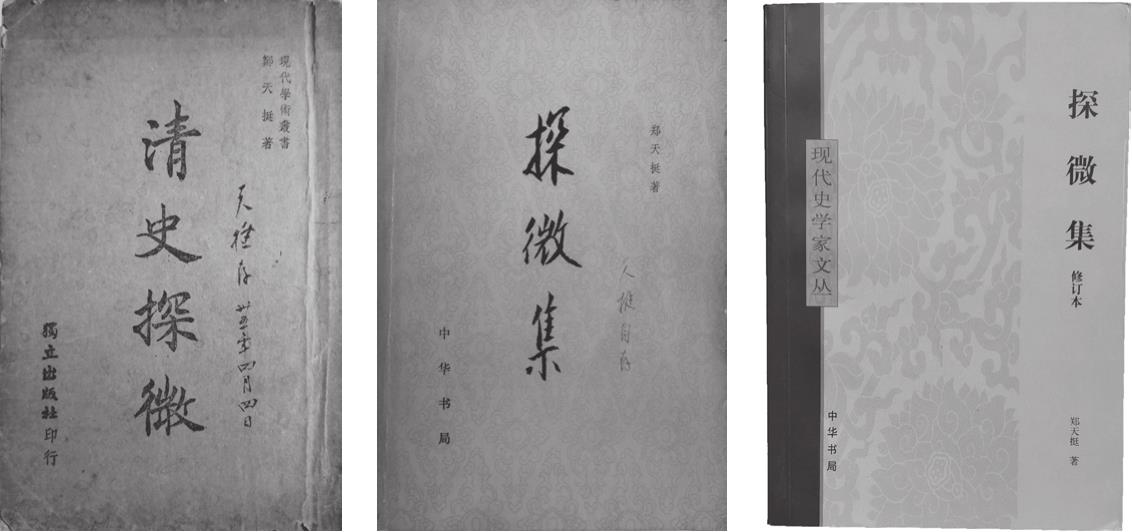 現代學術叢書
鄭天挺著
清史探微
天挺存 卅五年四月四日
獨立出版社印行
郑天挺著
探微集
天挺自存
中华书局
探微集
修订本
郑天挺 著
现代史学家文丛
中华书局